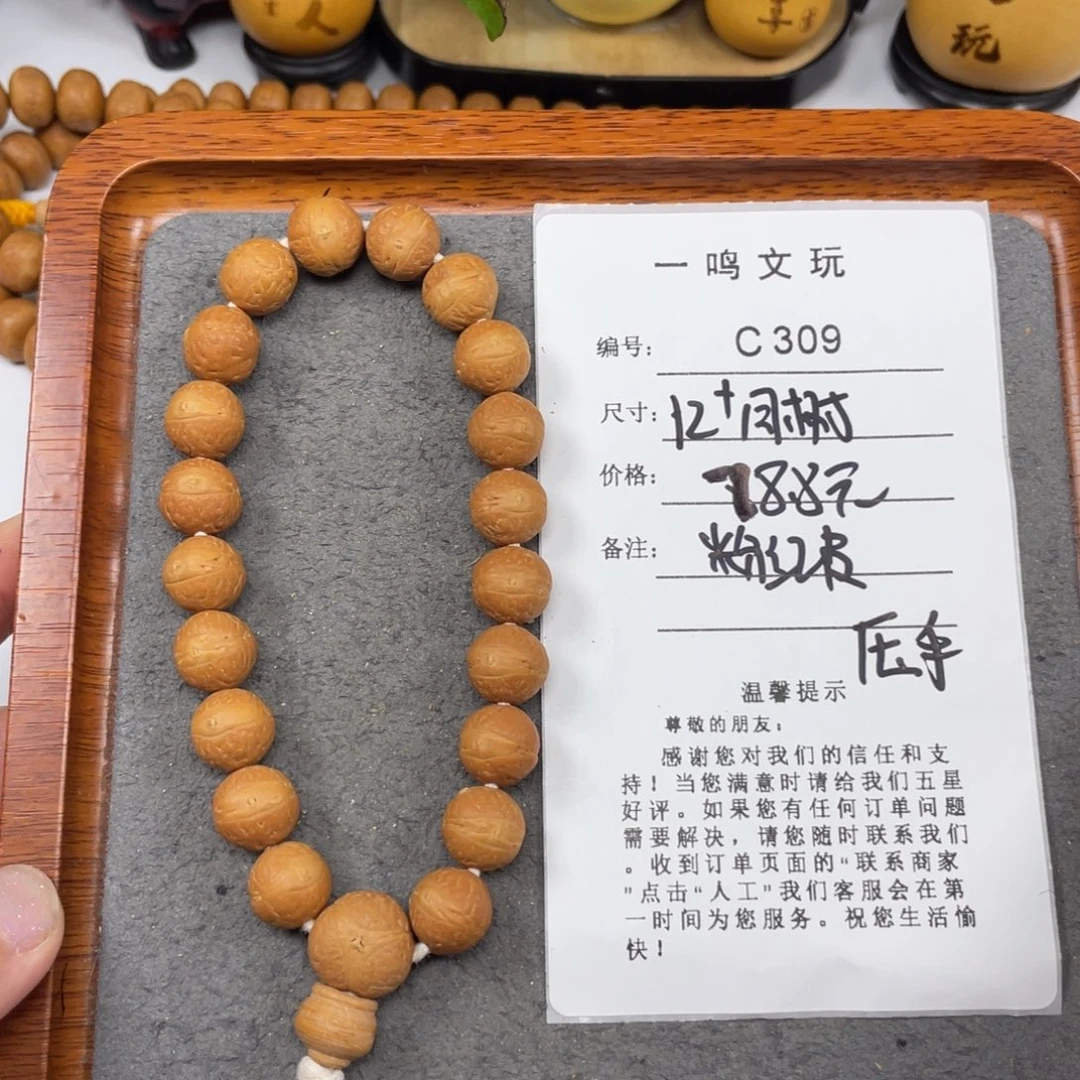 人
享
玩
一鸣文玩
编号: C309
尺寸: 12+同树
价格: 788元
备注: 粉红皮
压手
温馨提示
尊敬的朋友:
感谢您对我们的信任和支
持!当您满意时请给我们五星
好评。如果您有任何订单问题
需要解决,请您随时联系我们
。收到订单页面的“联系商家
”点击“人工”我们客服会在第
一时间为您服务。祝您生活愉
快!